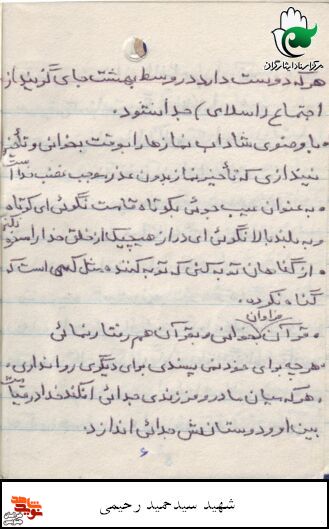 مرکز اسناد ایثارگران
هر که دوست دارد در وسط بهشت جای گزیند از
اجتماع (اسلامی) جدا نشود.
با وضوی شاداب نمازها را بوقت بخوانی و تأخیر
نیندازی که تأخیر نماز بدون عذر موجب غضب خداست
به عنوان عیب جوئی بکوتاه قامت نگوئی ای کوتاه
و به بلند بالا نگوئی ای دراز هیچیک از خلق خدا را مسخره نکنی
از گناهان توبه کنی که توبه کننده مثل کسی است که
گناه نکرده.
قرآن فراوان بخوانی و بقرآن هم رفتار نمائی
هر چه برای خود نمی پسندی برای دیگری روا نداری.
هر که میان مادر و فرزندی جدائی افکند خدا در قیامت
بین او و دوستانش جدائی اندازد.
۶
شهید سیدحمید رحیمی